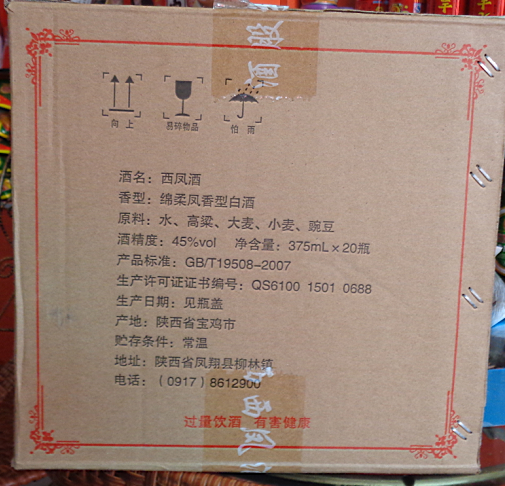 向上 易碎物品 怕雨
酒名：西凤酒
香型：绵柔凤香型白酒
原料：水、高粱、大麦、小麦、豌豆
酒精度：45%vol 净含量：375mL×20瓶
产品标准：GB/T19508-2007
生产许可证证书编号：QS6100 1501 0688
生产日期：见瓶盖
产地：陕西省宝鸡市
贮存条件：常温
地址：陕西省凤翔县柳林镇
电话：（0917）8612900
西凤
过量饮酒 有害健康